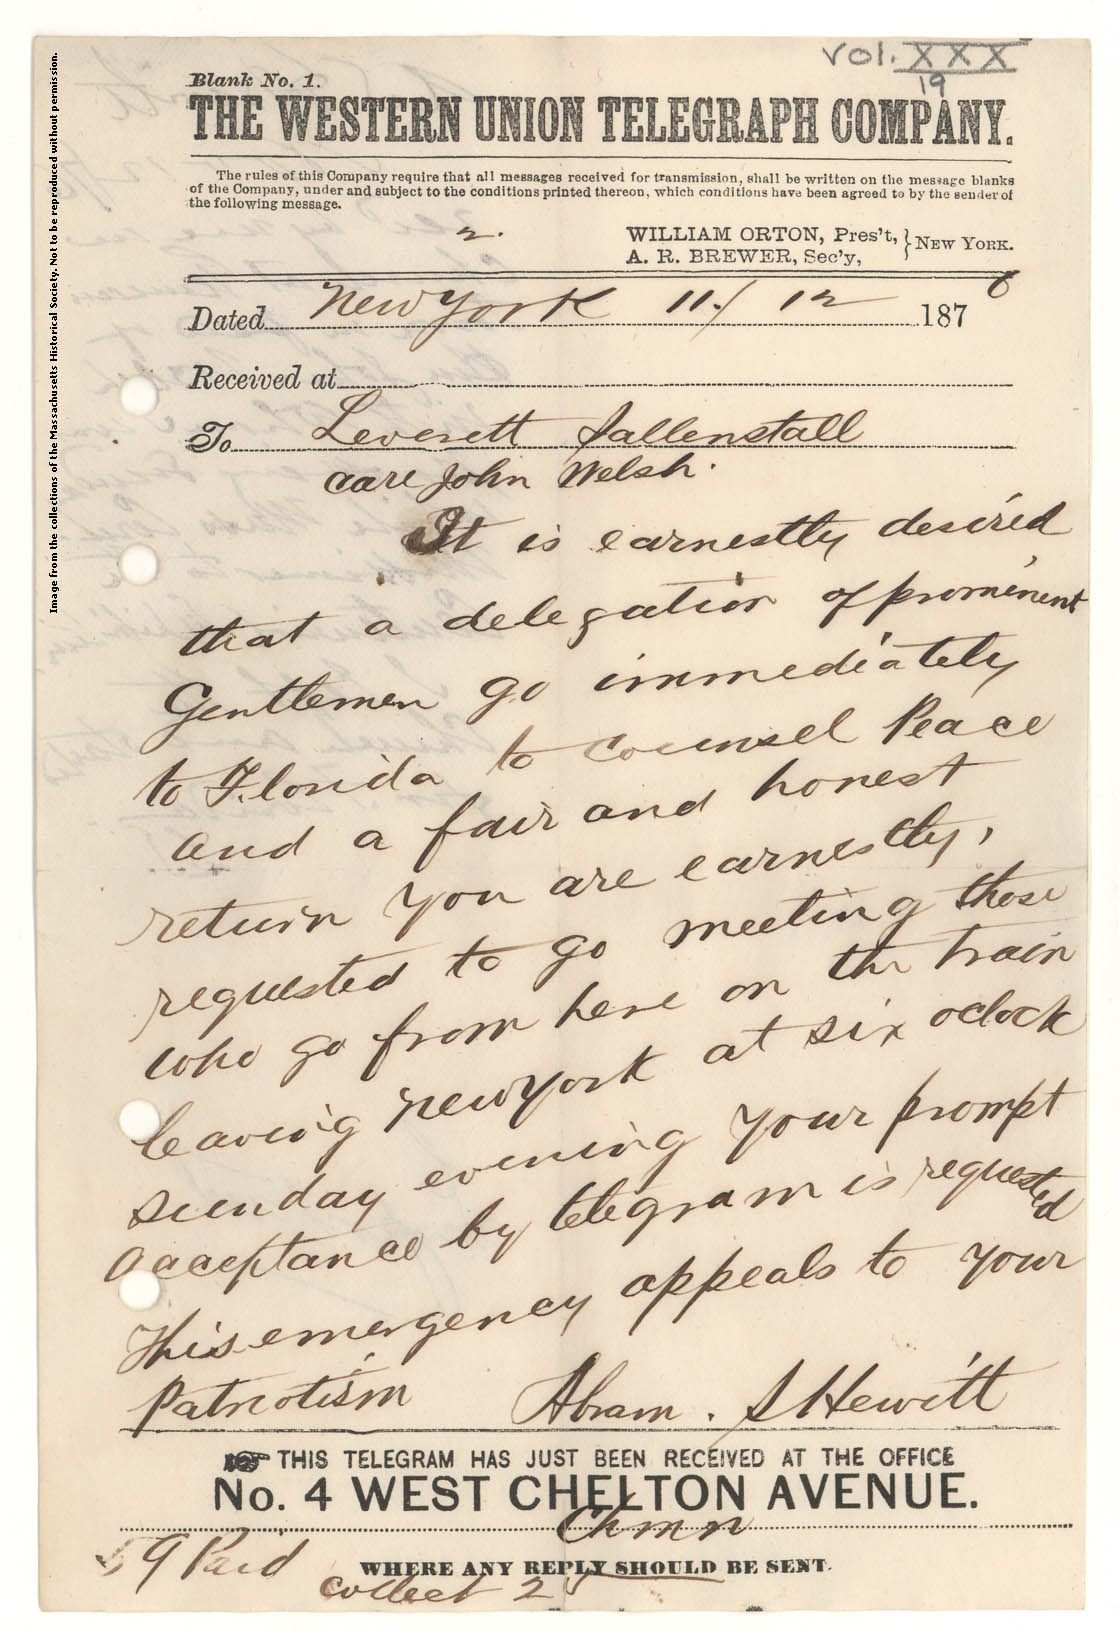 Vol. XXX
19
Blank No. 1.
THE WESTERN UNION TELEGRAPH COMPANY.
The rules of this Company require that all messages received for transmission, shall be written on the message blanks
of the Company, under and subject to the conditions printed thereon, which conditions have been agreed to by the sender of
the following message.
2.
WILLIAM ORTON, Pres't,
A. R. BREWER, Sec'y,
} NEW YORK.
Dated New York 11/12 1876
Received at
To Leverett Sallenstall
care John Welsh.
It is earnestly desired
that a delegation of prominent
Gentlemen go immediately
to Florida to counsel Peace
and a fair and honest
return you are earnestly,
requested to go meeting those
who go from here on the train
leaving New York at six oclock
sunday evening your prompt
acceptance by telegram is requested
This emergency appeals to your
Patriotism Abram. S Hewitt
THIS TELEGRAM HAS JUST BEEN RECEIVED AT THE OFFICE
No. 4 WEST CHELTON AVENUE.
Chmn
9 Paid
WHERE ANY REPLY SHOULD BE SENT.
collect 25
Image from the collections of the Massachusetts Historical Society. Not to be reproduced without permission.